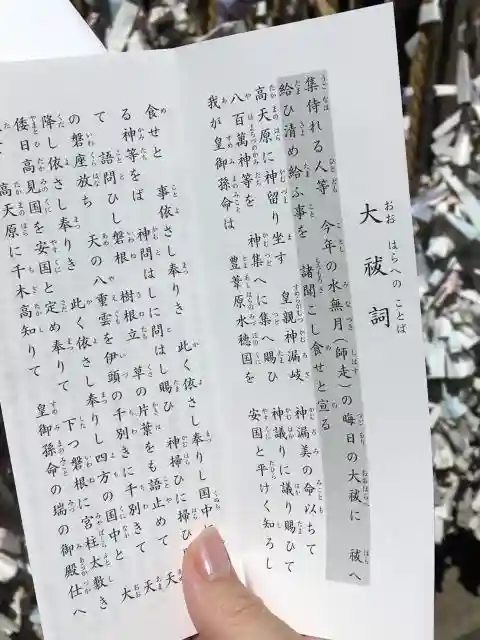 大祓詞
集侍れる人等 今年の水無月(師走)の晦日の大祓に 祓へ
給ひ清め給ふ事を 諸聞こし食せと宣る
高天原に神留り坐す 皇親神漏岐 神漏美の命以ちて
八百萬神等を 神集へに集へ賜ひ 神議りに議り賜ひて
我が皇御孫命は 豊葦原水穂国を 安国と平けく知ろし
食せと 事依さし奉りき 此く依さし奉りし国中に
る神等をば 神問はしに問はし賜ひ 神掃ひに掃ひ
て 語問ひし 磐根 樹根立 草の片葉をも語止めて 天
の磐座放ち 天の八重雲を伊頭の千別きに千別きて 天
降し依さし奉りき 此く依さし奉りし四方の国中と 大
倭日高見国を安国と定め奉りて 下つ磐根に宮柱太敷き
高天原に千木高知りて 皇御孫命の瑞の御殿仕へ